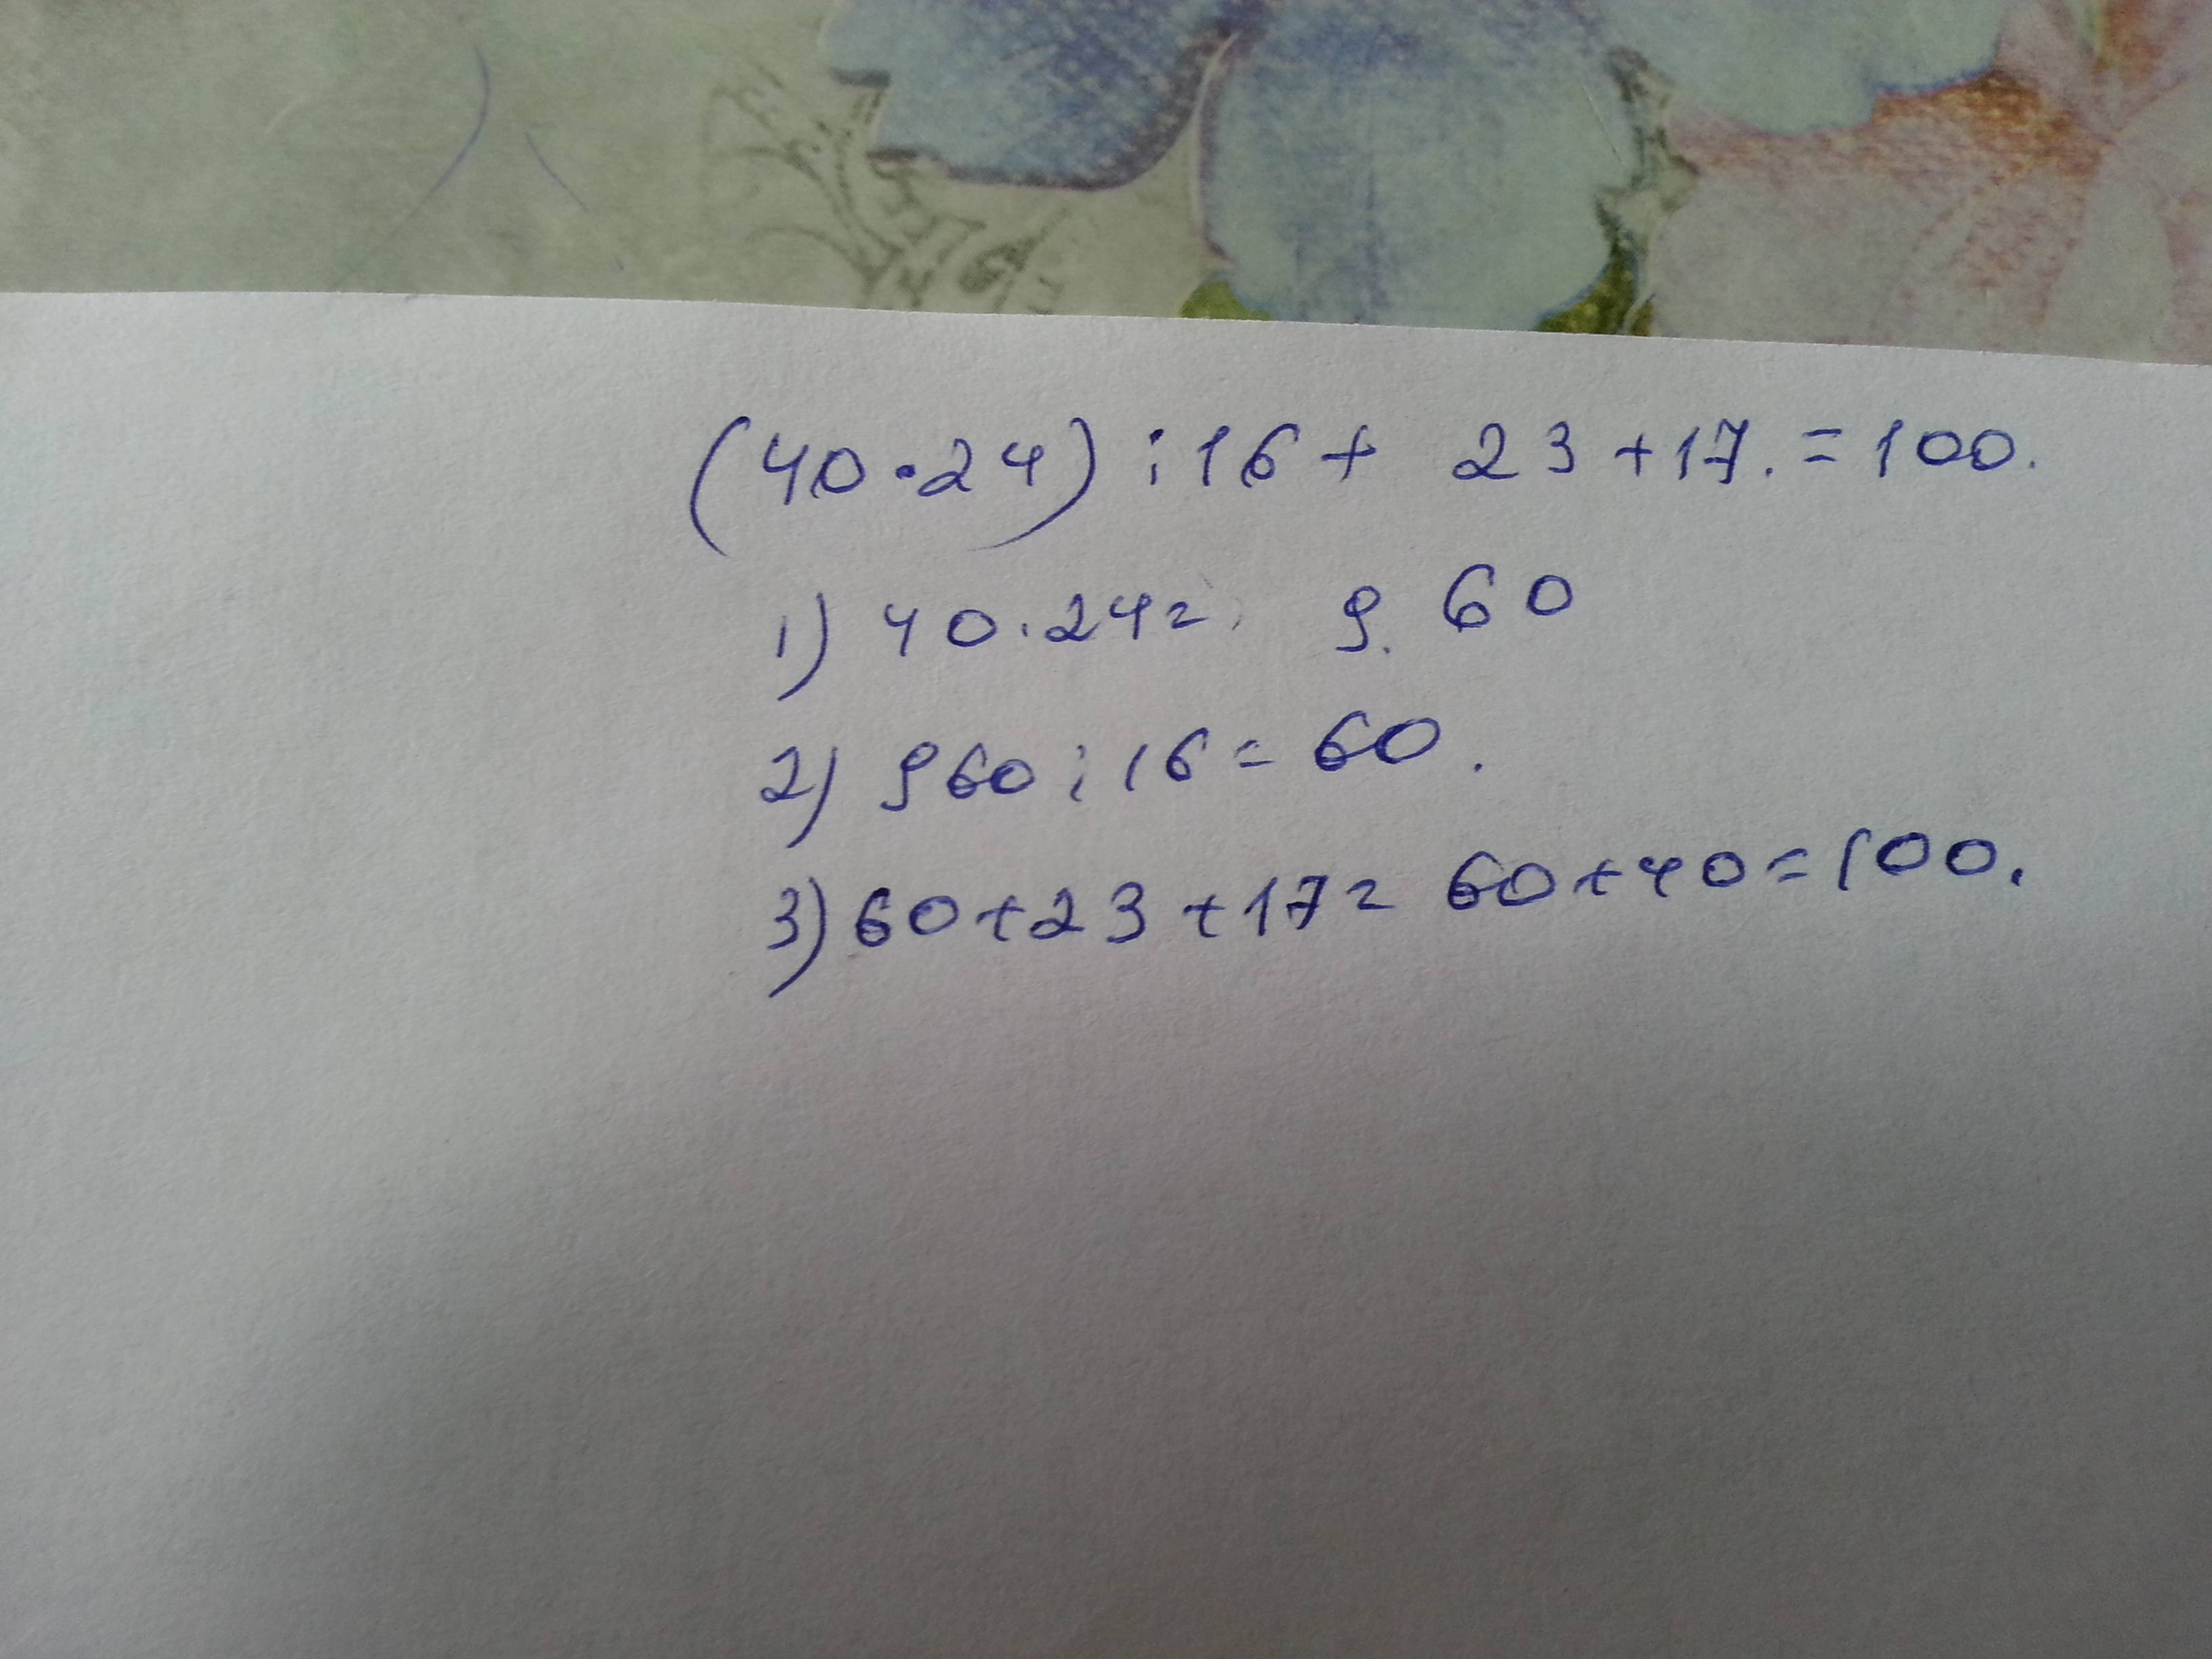 (40·24):16+ 23+17.=100.
1) 40·24= 9.60
2) 960:16=60.
3) 60+23+17= 60+40=100.